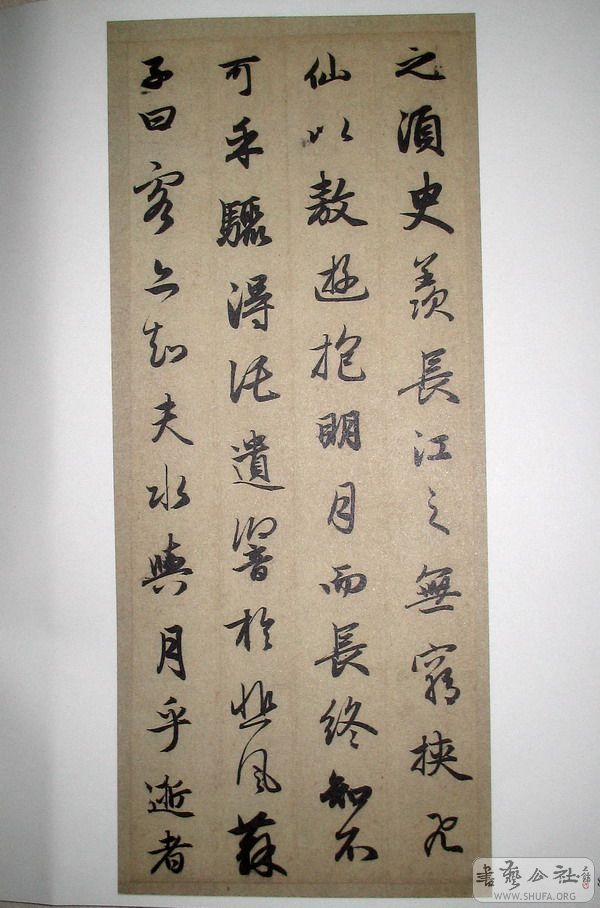 之須臾羨長江之無窮挾飛
仙以敖遊抱明月而長終知不
可乎驟得託遺響於悲風蘇
子曰客亦知夫水與月乎逝者
書藝公社
WWW.SHUFA.ORG